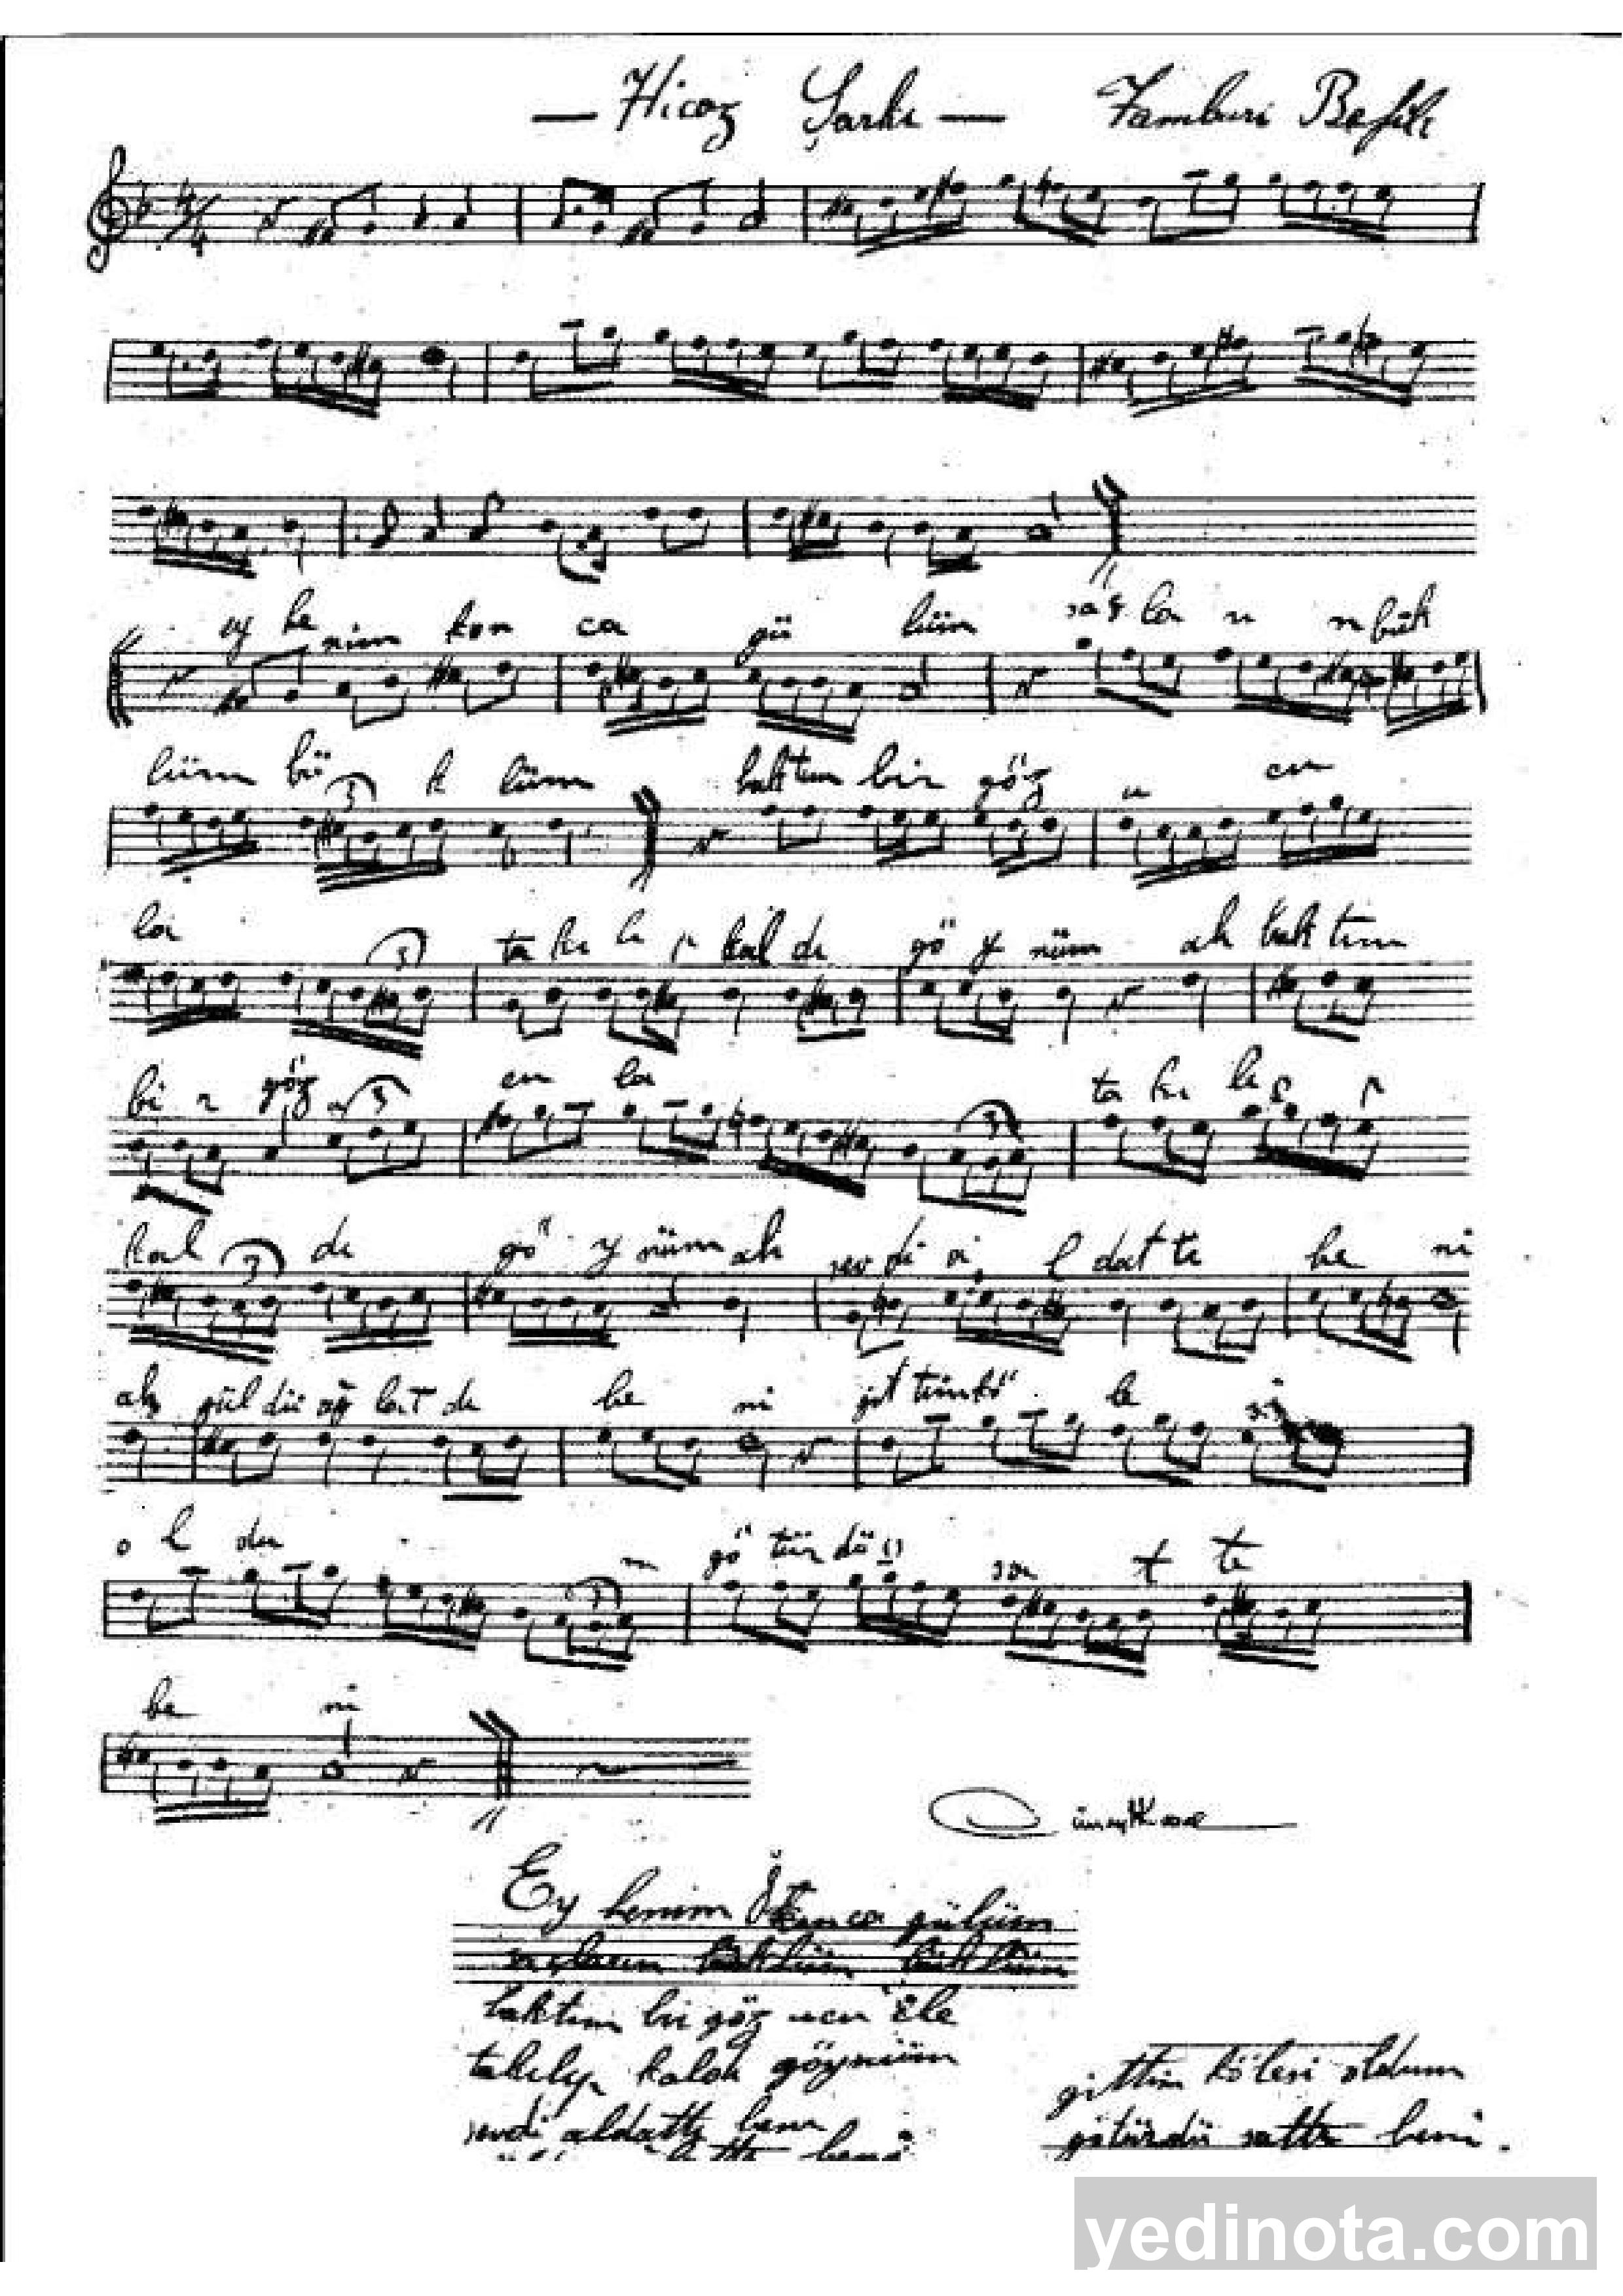 — Hicaz Şarkı — Tamburi Refik
4/4
ey be nim kon ca gü lüm saç la rı n bük
lüm bü k lüm baktım bir göz u cu
3
la ta kı lı p kal dı gö y nüm ah bak tım
3
bi r göz u cu la ta kı lı p
3 3
kal dı gö y nüm ah sev di a l dat tı be ni
3
ah gül dü ağ lat dı be ni git tim kö le si
o l du m gö tür dü sa t tı
3
be ni
Ey benim konca gülüm
saçların büklüm büklüm
baktım bir göz ucu ile
takılıp kaldı göynüm
sevdi aldattı beni
beni
gittim kölesi oldum
götürdü sattı beni.
yedinota.com